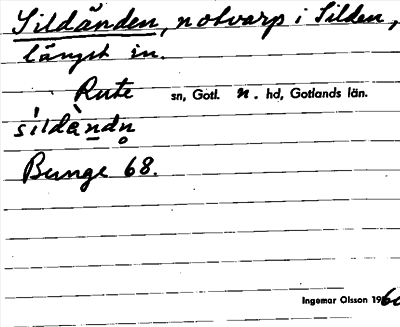 Sildänden, notvarp i Silden,
längst in.
Rute sn, Gotl. n. hd, Gotlands län.
síldàndn̥
Bunge 68.
Ingemar Olsson 1960